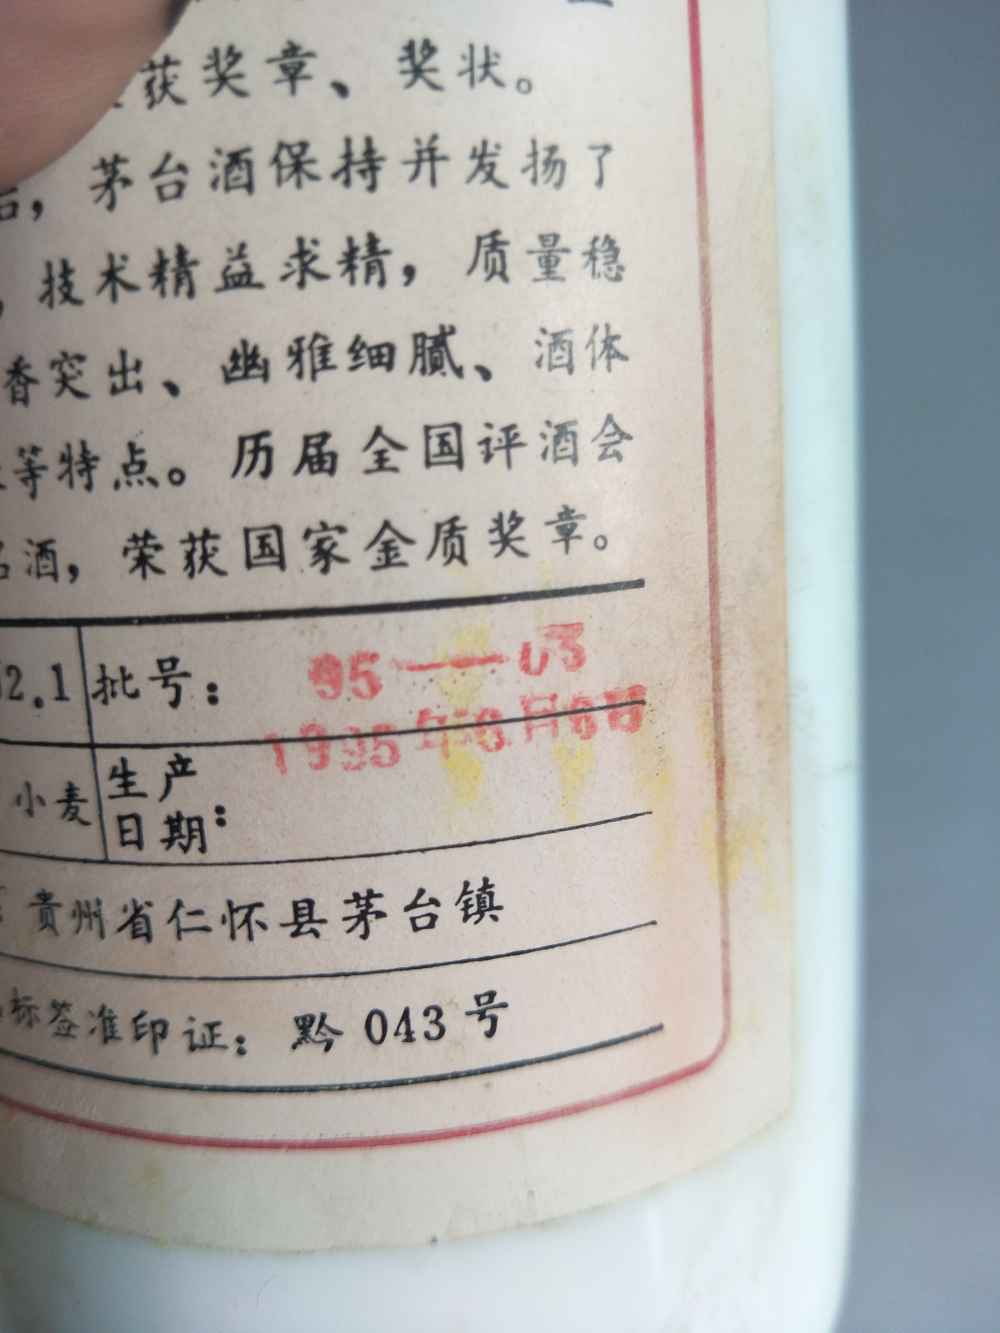 获奖章、奖状。
后，茅台酒保持并发扬了
，技术精益求精，质量稳
香突出、幽雅细腻、酒体
等特点。历届全国评酒会
名酒，荣获国家金质奖章。
2.1 批号： 95—03
1995年6月6日
小麦 生产日期：
贵州省仁怀县茅台镇
标签准印证：黔043号